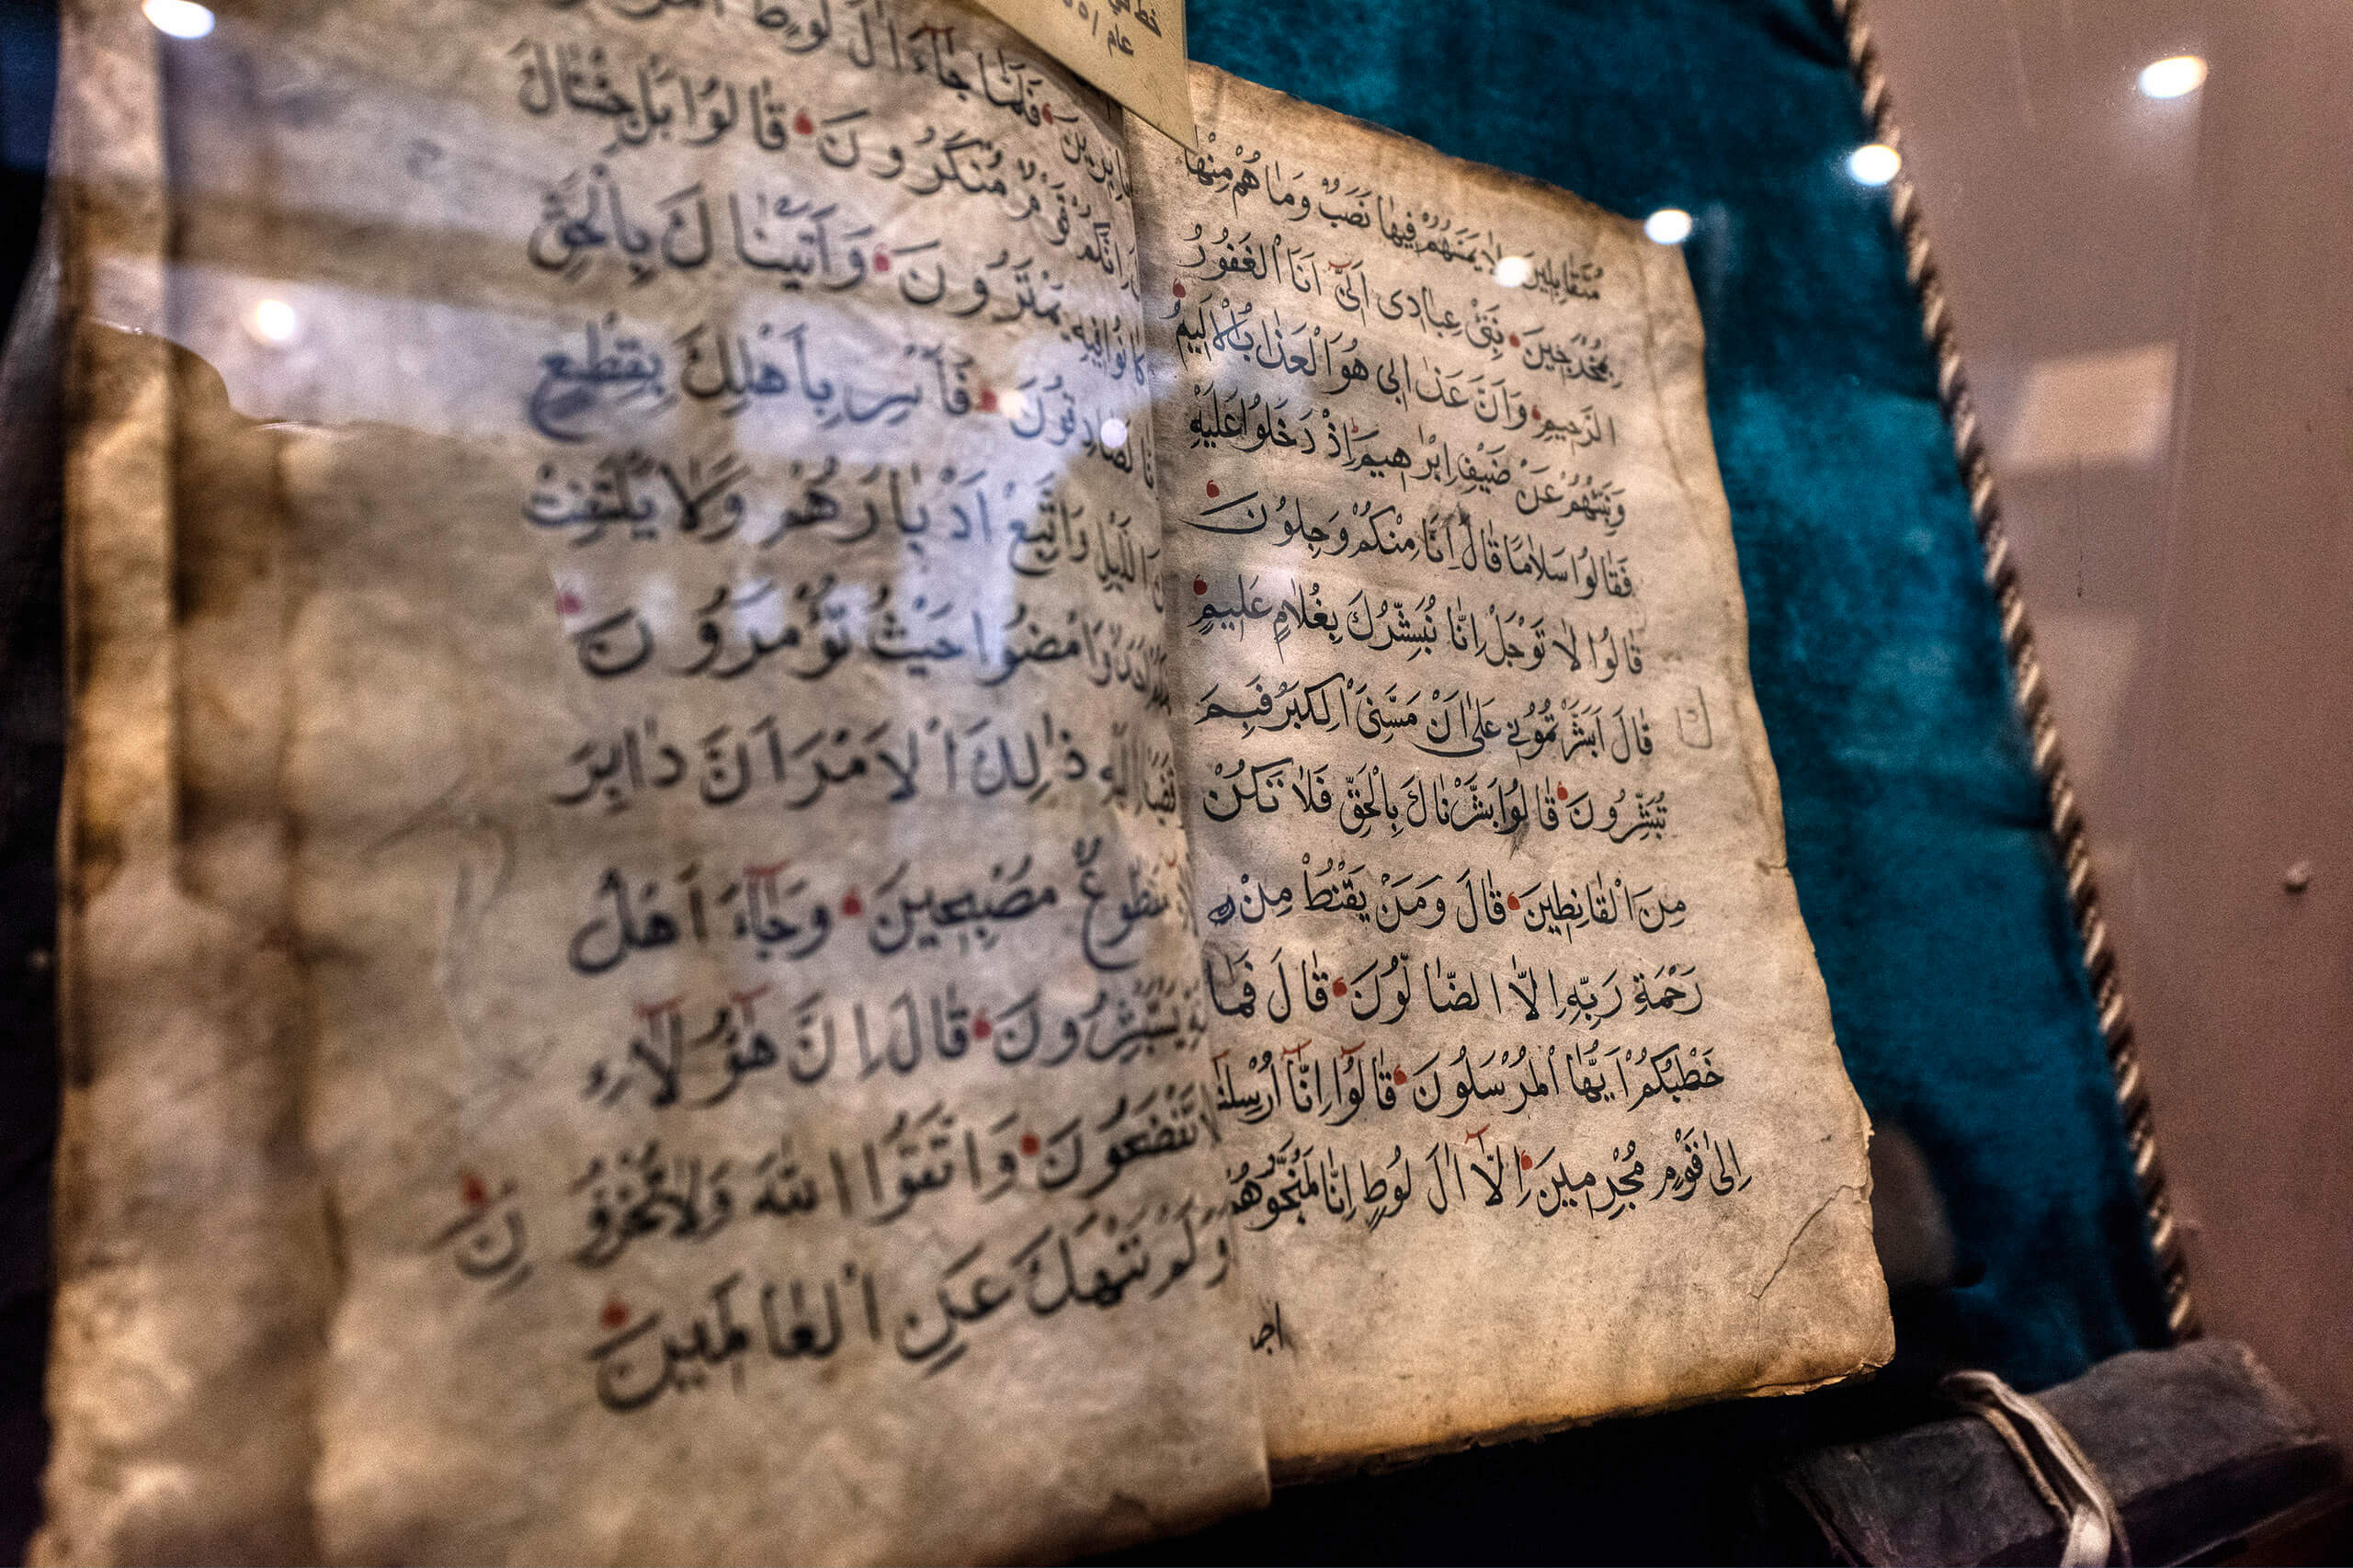 مُتَقَابِلِينَ لَا يَمَسُّهُمْ فِيهَا نَصَبٌ وَمَا هُمْ مِنْهَا
بِمُخْرَجِينَ نَبِّئْ عِبَادِى أَنِّى أَنَا الْغَفُورُ
الرَّحِيمُ وَأَنَّ عَذَابِى هُوَ الْعَذَابُ الْأَلِيمُ
وَنَبِّئْهُمْ عَنْ ضَيْفِ إِبْرَاهِيمَ إِذْ دَخَلُوا عَلَيْهِ
فَقَالُوا سَلَامًا قَالَ إِنَّا مِنْكُمْ وَجِلُونَ
قَالُوا لَا تَوْجَلْ إِنَّا نُبَشِّرُكَ بِغُلَامٍ عَلِيمٍ
قَالَ أَبَشَّرْتُمُونِي عَلَى أَنْ مَسَّنِىَ الْكِبَرُ فَبِمَ
تُبَشِّرُونَ قَالُوا بَشَّرْنَاكَ بِالْحَقِّ فَلَا تَكُنْ
مِنَ الْقَانِطِينَ قَالَ وَمَنْ يَقْنَطُ مِنْ
رَحْمَةِ رَبِّهِ إِلَّا الضَّالُّونَ قَالَ فَمَا
خَطْبُكُمْ أَيُّهَا الْمُرْسَلُونَ قَالُوا إِنَّا أُرْسِلْنَا
إِلَى قَوْمٍ مُجْرِمِينَ إِلَّا آلَ لُوطٍ إِنَّا لَمُنَجُّوهُمْ
فَلَمَّا جَاءَ آلَ لُوطٍ
قَوْمٌ مُنْكَرُونَ قَالُوا بَلْ جِئْنَاكَ
كَانُوا فِيهِ يَمْتَرُونَ وَأَتَيْنَاكَ بِالْحَقِّ
لَصَادِقُونَ فَأَسْرِ بِأَهْلِكَ بِقِطْعٍ
مِنَ اللَّيْلِ وَاتَّبِعْ أَدْبَارَهُمْ وَلَا يَلْتَفِتْ
وَامْضُوا حَيْثُ تُؤْمَرُونَ
ذَالِكَ الْأَمْرَ أَنَّ دَابِرَ
مَقْطُوعٌ مُصْبِحِينَ وَجَاءَ أَهْلُ
يَسْتَبْشِرُونَ قَالَ إِنَّ هَؤُلَاءِ
تَفْضَحُونَ وَاتَّقُوا اللَّهَ وَلَا تُخْزُونِ
نَنْهَكَ عَنِ الْعَالَمِينَ
عام